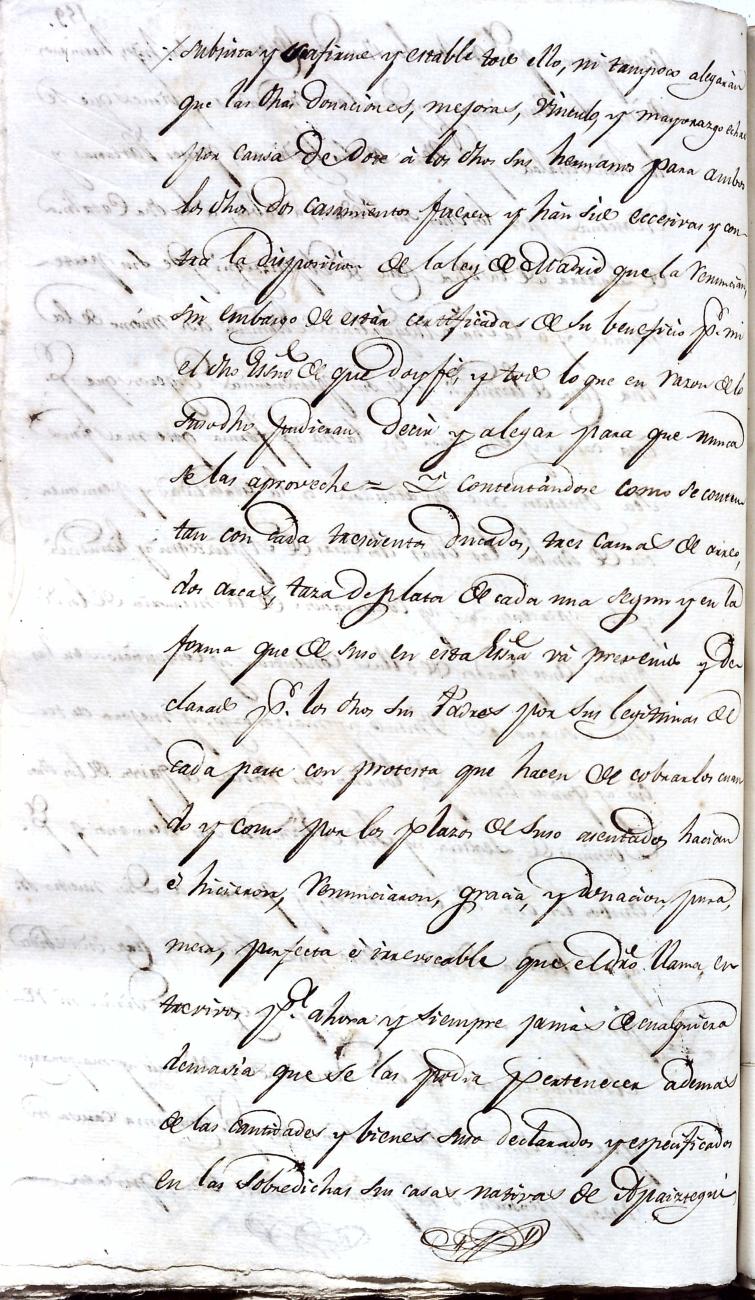 subsista y sea firme y estable todo ello, ni tampoco alegarán
que las dhas donaciones, mejoras, vinculo, y mayorazgo echas
por causa de Dote á los dhos sus hermanos para ambos
los dhos dos casamientos fueren y hán sido eccesivas y con-
tra la disposicion de la ley de Madrid que la renuncian,
sin embargo de están certificadas de su beneficio pr. mi
el dho Essno de que doy fé, y todo lo que en razon de lo
susodho pudieran decir y alegar para que nunca
se las aproveche = Y contentándose como se conten
tan con cada trescientos ducados, tres camas de arreo,
dos arcas, taza de plata de cada una segun y en la
forma que de suso en ésta Essra vá prevenido y de
clarado pr. los dhos sus Padres por sus legitimas de
cada parte con protesta que hacen de cobrarlos cuan
do y como por los plazos de suso asentados hacian
é hicieron, renunciaron, gracia, y donacion pura,
mera, perfecta é irrevocable que el dro. llama, en
trevivos pa. ahora y siempre jamás de cualquiera
demasia que se las podia pertenecer ademas
de las cantidades y bienes suso declarados y especificados
en las sobredichas sus casas nativas de Apaiztegui,